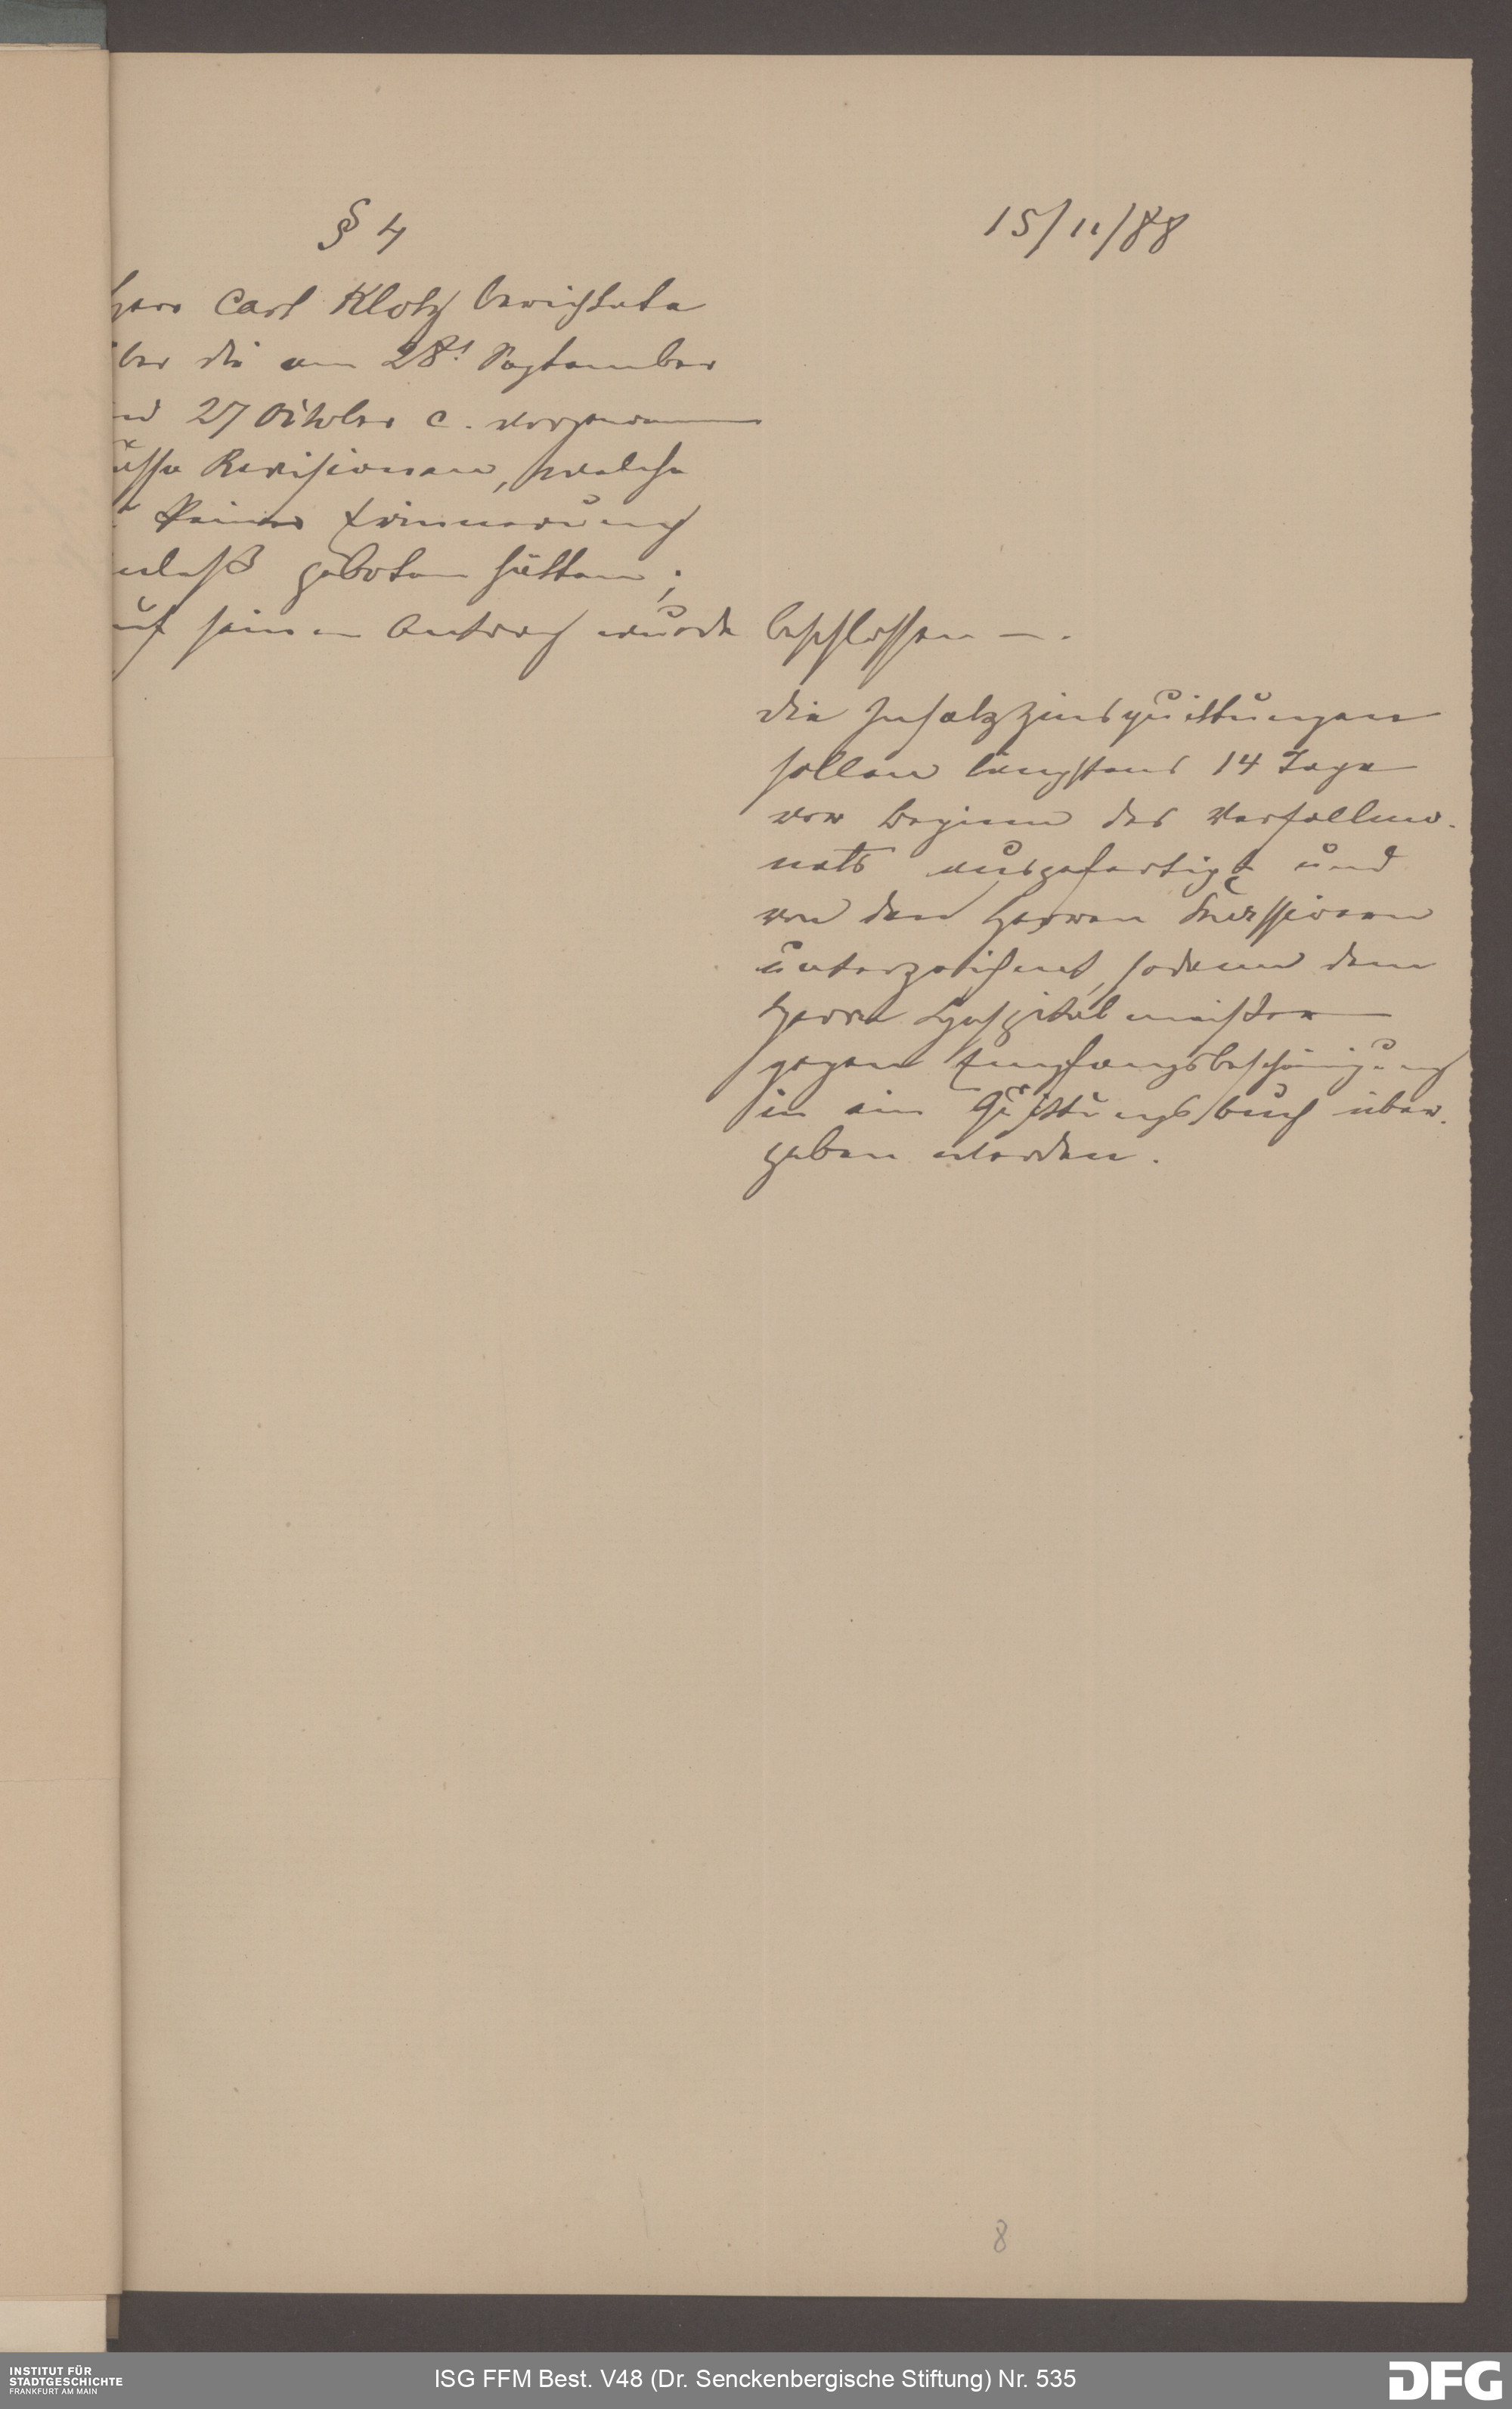 § 4
15/11/88
Herr Carl Klotz berichtete
über die am 28t September
und 27 October c. vorgenomm
Revisionen, welche
keiner Erinnerung
Anlaß geboten hätten;
auf seinen Antrag wurde beschlossen —.
die Insatzzinsquittungen
sollen längstens 14 Tage
vor Beginn des Verfallmo-
nats ausgefertigt und
von den Herren
unterzeichnet, sodann dem
Herrn Hospitalmeister
gegen Empfangsbescheinigung
in ein Quittungsbuch über-
geben werden.
8
INSTITUT FÜR
STADTGESCHICHTE
FRANKFURT AM MAIN
ISG FFM Best. V48 (Dr. Senckenbergische Stiftung) Nr. 535
DFG